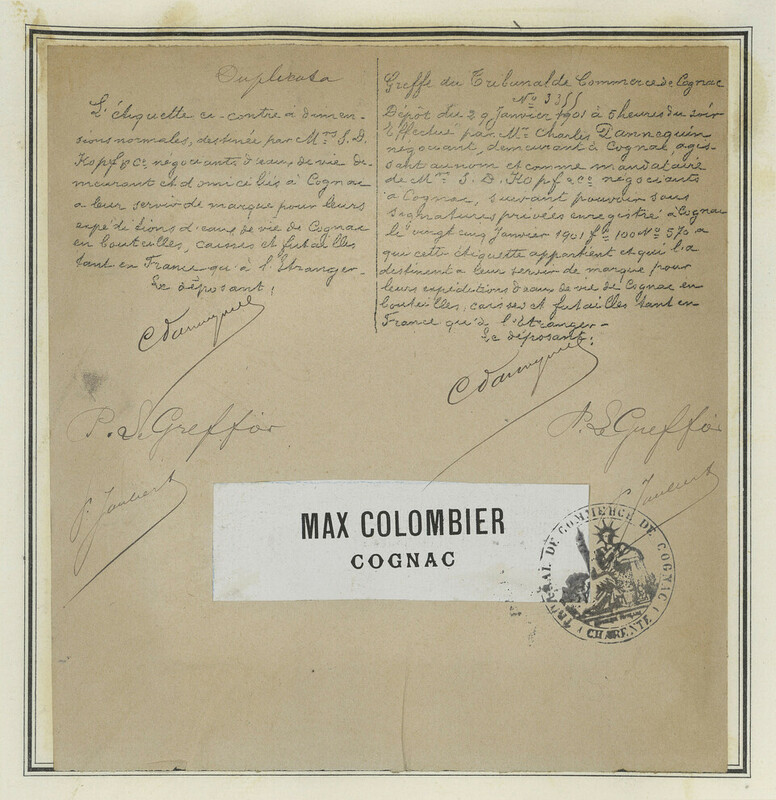 Duplicata
L'étiquette ci-contre à dimen-
sions normales, destinée par Mrs S. D.
Kopf & Co négociants d'eaux de vie de-
meurant et domiciliés à Cognac
à leur servir de marque pour leurs
expéditions d'eaux de vie de Cognac
en bouteilles, caisses et futailles
tant en France qu'à l'Etranger-
Le déposant;
C Dannequin
P. Le Greffier
P. Jaubert
Greffe du Tribunal de Commerce de Cognac
No 3355
Dépôt du 29 Janvier 1901 à 5 heures du soir
Effectué par Mr Charles Dannequin
négociant, demeurant à Cognac agis-
sant au nom et comme mandataire
de Mrs S. D. Kopf & Co négociants
à Cognac, suivant pouvoir sous
signatures privées enregistré à Cognac
le vingt cinq Janvier 1901 fo 100 No 570 a
que cette étiquette appartient et qui la
destinent à leur servir de marque pour
leurs expéditions d'eaux de vie de Cognac en
bouteilles, caisses et futailles tant en-
France qu'à l'Etranger-
Le déposant:
C Dannequin
P. Le Greffier
P. Jaubert
MAX COLOMBIER
COGNAC
TRIBUNAL DE COMMERCE DE COGNAC
(CHARENTE)